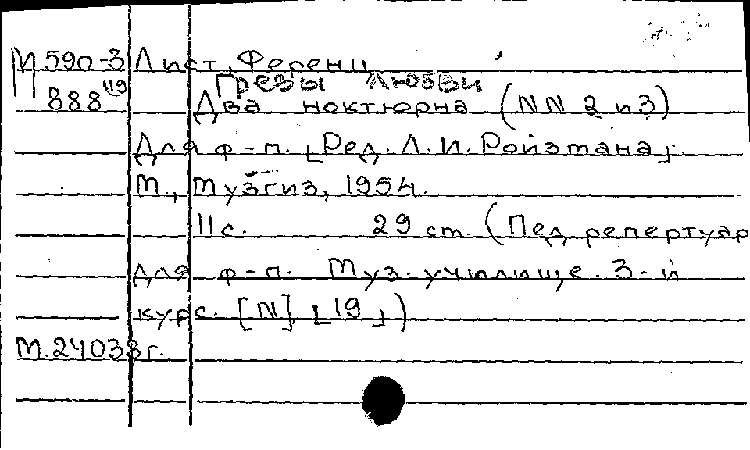 М 590-3 Лист, Ференц
Грёзы любви
888 119 Два ноктюрна (NN 2 и 3)
Для ф-п. [Ред. Л. И. Ройзмана].
М., Музгиз, 1954.
11 с. 29 см (Пед. репертуар
для ф-п. Муз. училище. 3-й
курс. [N] [19])
М.24038г.